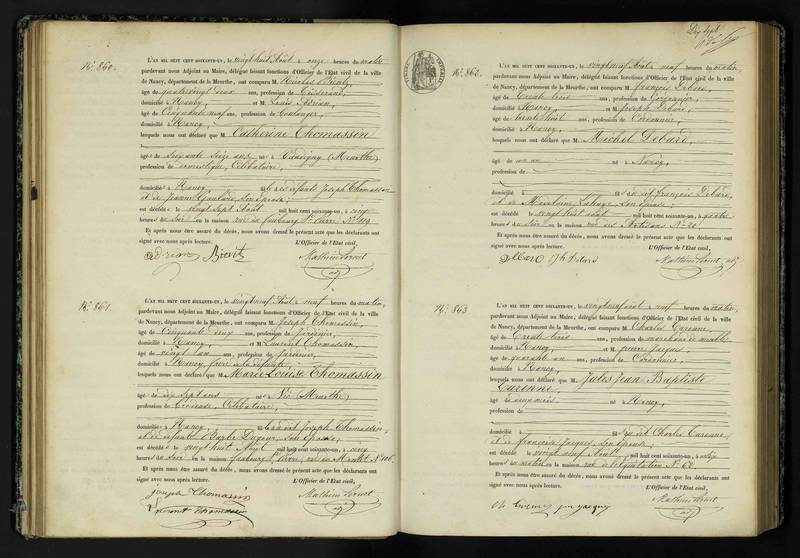 Dix sept
No. 860.
L'AN MIL HUIT CENT SOIXANTE-UN, le vingt huit Août à onze heures du matin
pardevant nous Adjoint au Maire, délégué faisant fonctions d'Officier de l'Etat civil de la ville
de Nancy, département de la Meurthe, ont comparu M. Nicolas
âgé de quatrevingt deux ans, profession de Tisserand,
domicilié à Nancy, et M. Louis Adrian,
âgé de Cinquante neuf ans, profession de boulanger,
domicilié à Nancy,
lesquels nous ont déclaré que M. Catherine Thomassin
âgée de soixante dix ans né à (Meurthe)
profession de domestique, Célibataire,
domiciliée à Nancy, fille des défunts Joseph Thomassin
et de Jeanne son épouse,
est décédée le vingt sept Août mil huit cent soixante-un, à cinq
heures du soir en la maison rue du faubourg St. Pierre No. 119
Et après nous être assuré du décès, nous avons dressé le présent acte que les déclarants ont
signé avec nous après lecture. L'Officier de l'Etat civil,
No. 861.
L'AN MIL HUIT CENT SOIXANTE-UN, le vingt neuf Août à neuf heures du matin,
pardevant nous Adjoint au Maire, délégué faisant fonctions d'Officier de l'Etat civil de la ville
de Nancy, département de la Meurthe, ont comparu M. Joseph Thomassin,
âgé de Cinquante cinq ans, profession de jardinier,
domicilié à Nancy, et M. Laurent Thomassin,
âgé de vingt un ans, profession de jardinier,
domicilié à Nancy, frère de la défunte,
lesquels nous ont déclaré que M. Marie Louise Thomassin
âgée de dix sept ans née à Vic (Meurthe)
profession de Célibataire,
domiciliée à Nancy, fille de Joseph Thomassin
et de défunte Barbe son épouse,
est décédée le vingt huit Août mil huit cent soixante-un, à cinq
heures du soir en la maison faubourg St. Pierre, rue de No. 106
Et après nous être assuré du décès, nous avons dressé le présent acte que les déclarants ont
signé avec nous après lecture. L'Officier de l'Etat civil,
Joseph Thomassin
Laurent Thomassin
No. 862.
L'AN MIL HUIT CENT SOIXANTE-UN, le vingt neuf Août à neuf heures du matin,
pardevant nous Adjoint au Maire, délégué faisant fonctions d'Officier de l'Etat civil de la ville
de Nancy, département de la Meurthe, ont comparu M. françois Debard,
âgé de trente trois ans, profession de Cordonnier,
domicilié à Nancy, et M. Joseph Debard,
âgé de trente huit ans, profession de Cordonnier,
domicilié à Nancy,
lesquels nous ont déclaré que M. Michel Debard,
âgé de un an né à Nancy,
profession de
domicilié à fils de françois Debard,
et de Madelaine son épouse,
est décédé le vingt huit août mil huit cent soixante-un, à quatre
heures du soir en la maison rue des Artisans No. 20
Et après nous être assuré du décès, nous avons dressé le présent acte que les déclarants ont
signé avec nous après lecture. L'Officier de l'Etat civil,
No. 863
L'AN MIL HUIT CENT SOIXANTE-UN, le vingt neuf août à neuf heures du matin,
pardevant nous Adjoint au Maire, délégué faisant fonctions d'Officier de l'Etat civil de la ville
de Nancy, département de la Meurthe, ont comparu M. Charles
âgé de trente trois ans, profession de marchand de meubles
domicilié à Nancy et M. pierre Jacques,
âgé de quarante un ans, profession de
domicilié à Nancy,
lesquels nous ont déclaré que M. Jules Jean Baptiste
âgé de deux mois né à Nancy,
profession de
domicilié à fils de Charles
et de françoise Jacques son épouse,
est décédé le vingt neuf Août mil huit cent soixante-un, à six
heures du matin en la maison rue de l'équitation No. 62
Et après nous être assuré du décès, nous avons dressé le présent acte que les déclarants ont
signé avec nous après lecture. L'Officier de l'Etat civil,